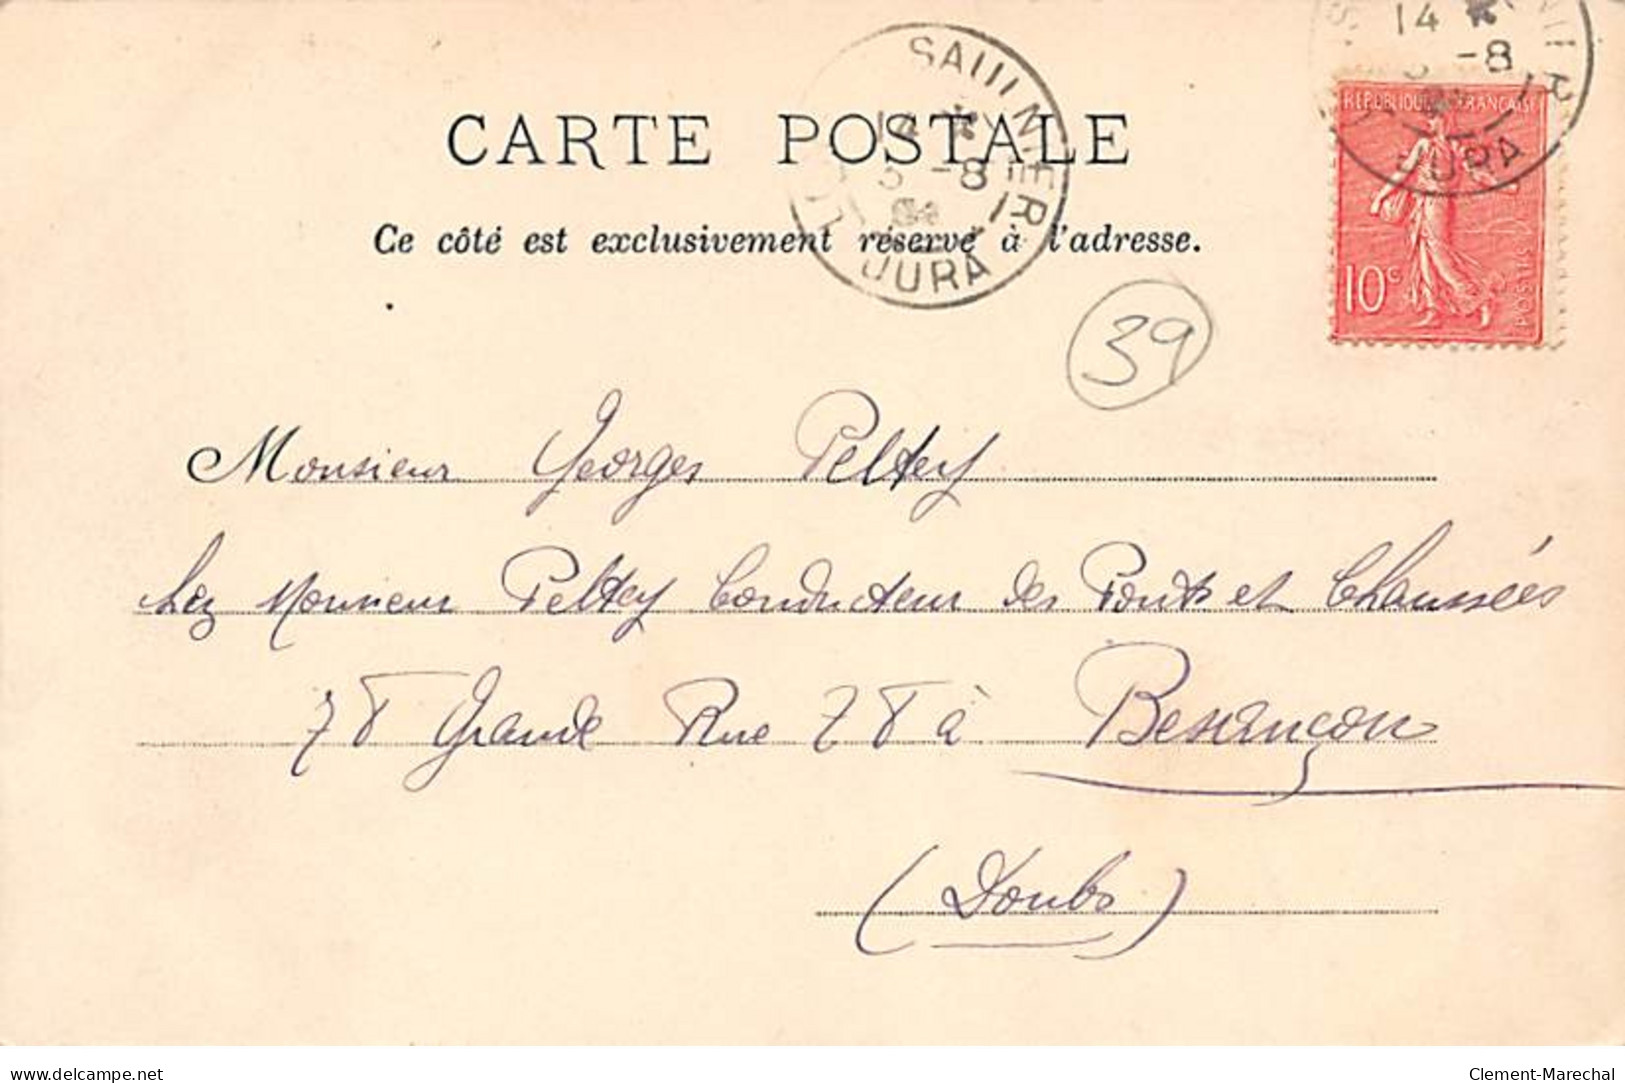 CARTE POSTALE
Ce côté est exclusivement réservé à l'adresse.
14
-8
JURA
14
-8
JURA
RÉPUBLIQUE FRANÇAISE
10c
POSTES
39
Monsieur Georges Peltey
chez Monsieur Peltey Conducteur des Ponts et Chaussées
78 Grande Rue 78 à Besançon
(Doubs)
delcampe.net
Clement-Marechal